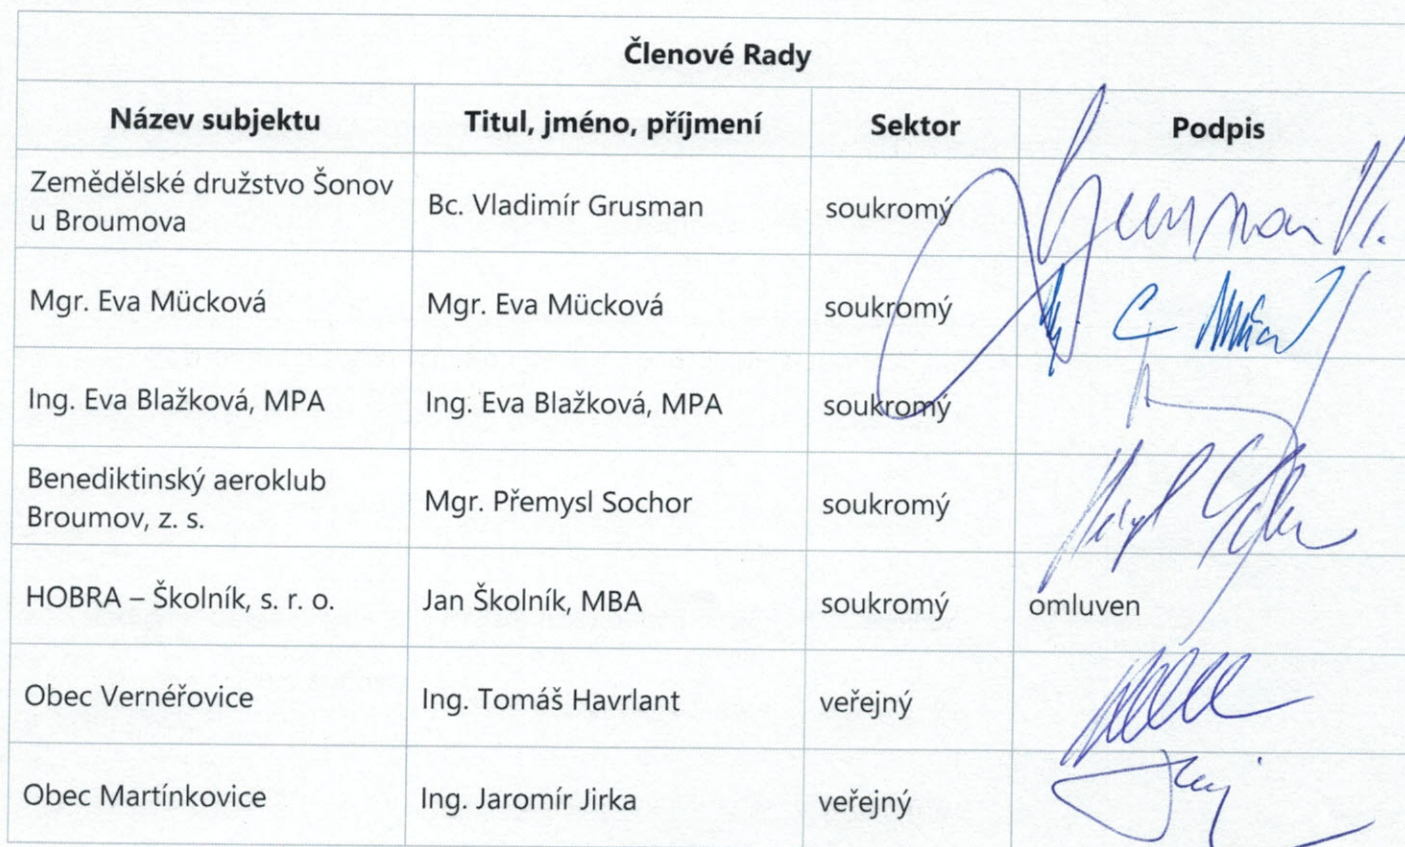 Členové Rady
Název subjektu Titul, jméno, příjmení Sektor Podpis
Zemědělské družstvo Šonov
u Broumova
Bc. Vladimír Grusman soukromý
Mgr. Eva Mücková Mgr. Eva Mücková soukromý
Ing. Eva Blažková, MPA Ing. Eva Blažková, MPA soukromý
Benediktinský aeroklub
Broumov, z. s.
Mgr. Přemysl Sochor soukromý
HOBRA – Školník, s. r. o. Jan Školník, MBA soukromý omluven
Obec Vernéřovice Ing. Tomáš Havrlant veřejný
Obec Martínkovice Ing. Jaromír Jirka veřejný